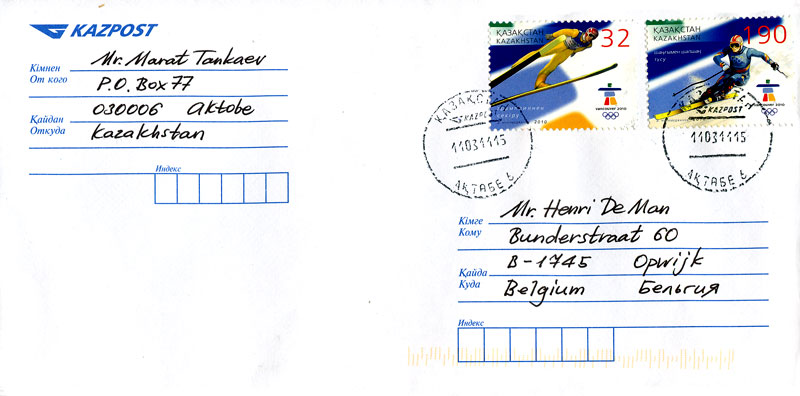 KAZPOST
Кімнен
От кого
Mr. Marat Tankaev
P.O. Box 77
Қайдан
Откуда
030006 Aktobe
Kazakhstan
Индекс
ҚАЗАҚСТАН
KAZAKHSTAN
32
VANCOUVER 2010
2010
ҚАЗАҚСТАН
KAZAKHSTAN
190
VANCOUVER 2010
ҚАЗАҚСТАН
KAZPOST
11031115
АҚТӨБЕ 6
KAZPOST
11031115
АҚТӨБЕ 6
Кімге
Кому
Mr. Henri De Man
Bunderstraat 60
Қайда
Куда
B-1745 Opwijk
Belgium Бельгия
Индекс